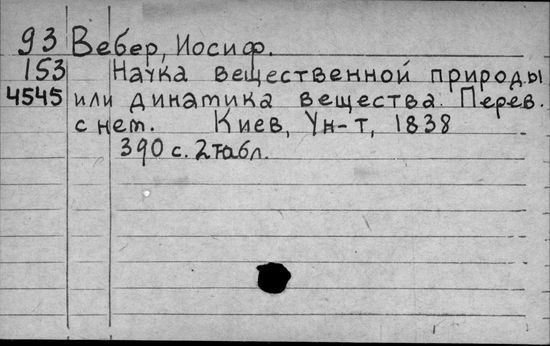 93 Вебер, Иосиф.
153 Наука вещественной природы
4545 или динатика вещества. Перев.
с нем. Киев, Ун-т, 1838
390 с. 2 табл.